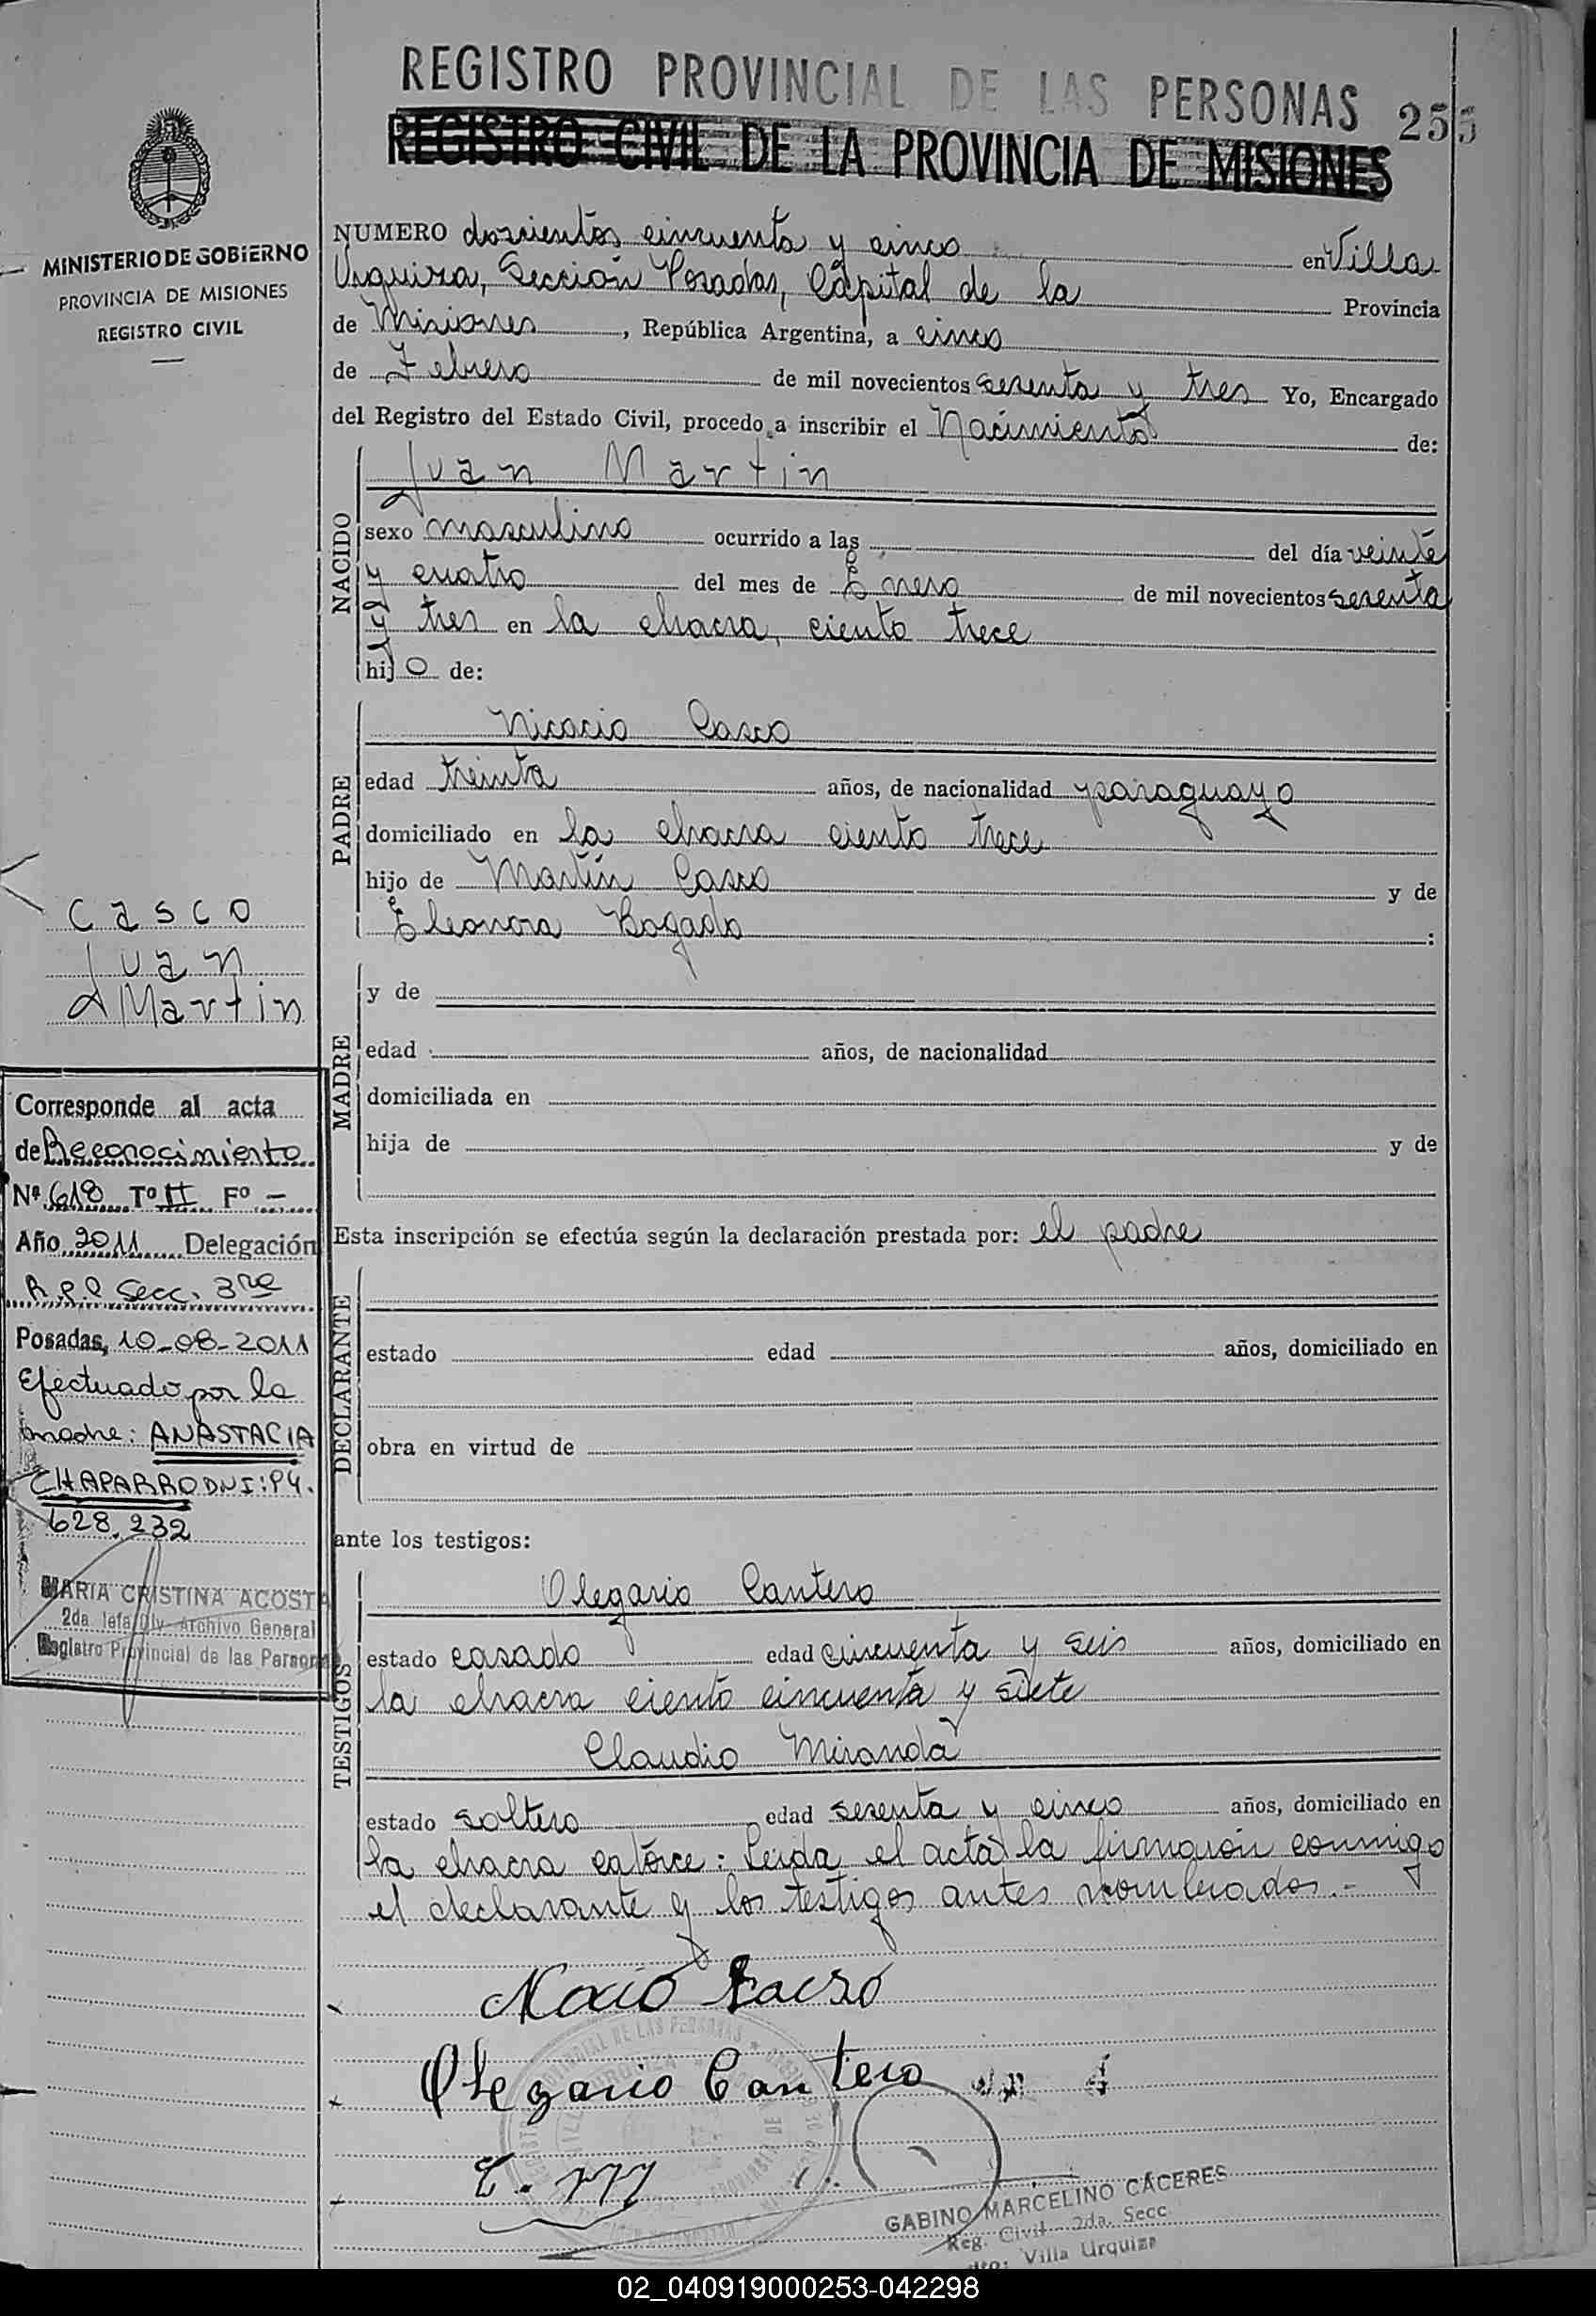 REGISTRO PROVINCIAL DE LAS PERSONAS 255
REGISTRO CIVIL DE LA PROVINCIA DE MISIONES
MINISTERIO DE GOBIERNO
PROVINCIA DE MISIONES
REGISTRO CIVIL
NUMERO doscientos cincuenta y cinco en Villa
Urquiza, Sección Posadas, Capital de la Provincia
de Misiones, República Argentina, a cinco
de Febrero de mil novecientos sesenta y tres Yo, Encargado
del Registro del Estado Civil, procedo a inscribir el Nacimiento de:
NACIDO
Juan Martin
sexo masculino ocurrido a las del día veinte
y cuatro del mes de Enero de mil novecientos sesenta
y tres en la chacra, ciento trece
hijo de:
PADRE
Nicacio Casco
edad treinta años, de nacionalidad paraguayo
domiciliado en la chacra ciento trece
hijo de Martín Casco y de
Eleonora Bogado :
Casco
Juan
Martin
MADRE
y de
edad años, de nacionalidad
domiciliada en
hija de y de
Corresponde al acta
de Reconocimiento
Nº 618 Tº II Fº -
Año 2011 Delegación
R.P.P Secc. 3ra
Posadas, 10-08-2011
Efectuado por la
madre: ANASTACIA
CHAPARRO DNI: 94.
628.232
MARIA CRISTINA ACOSTA
2da. Jefa Div. Archivo General
Registro Provincial de las Personas
Esta inscripción se efectúa según la declaración prestada por: el padre
DECLARANTE
estado edad años, domiciliado en
obra en virtud de
ante los testigos:
TESTIGOS
Olegario Cantero
estado casado edad cincuenta y seis años, domiciliado en
la chacra ciento cincuenta y siete
Claudio Miranda
estado soltero edad sesenta y cinco años, domiciliado en
la chacra catorce: Leída el acta la firmaron conmigo
el declarante y los testigos antes nombrados.-
Olegario Cantero
GABINO MARCELINO CACERES
Reg. Civil - 2da. Secc
Villa Urquiza
02_040919000253-042298